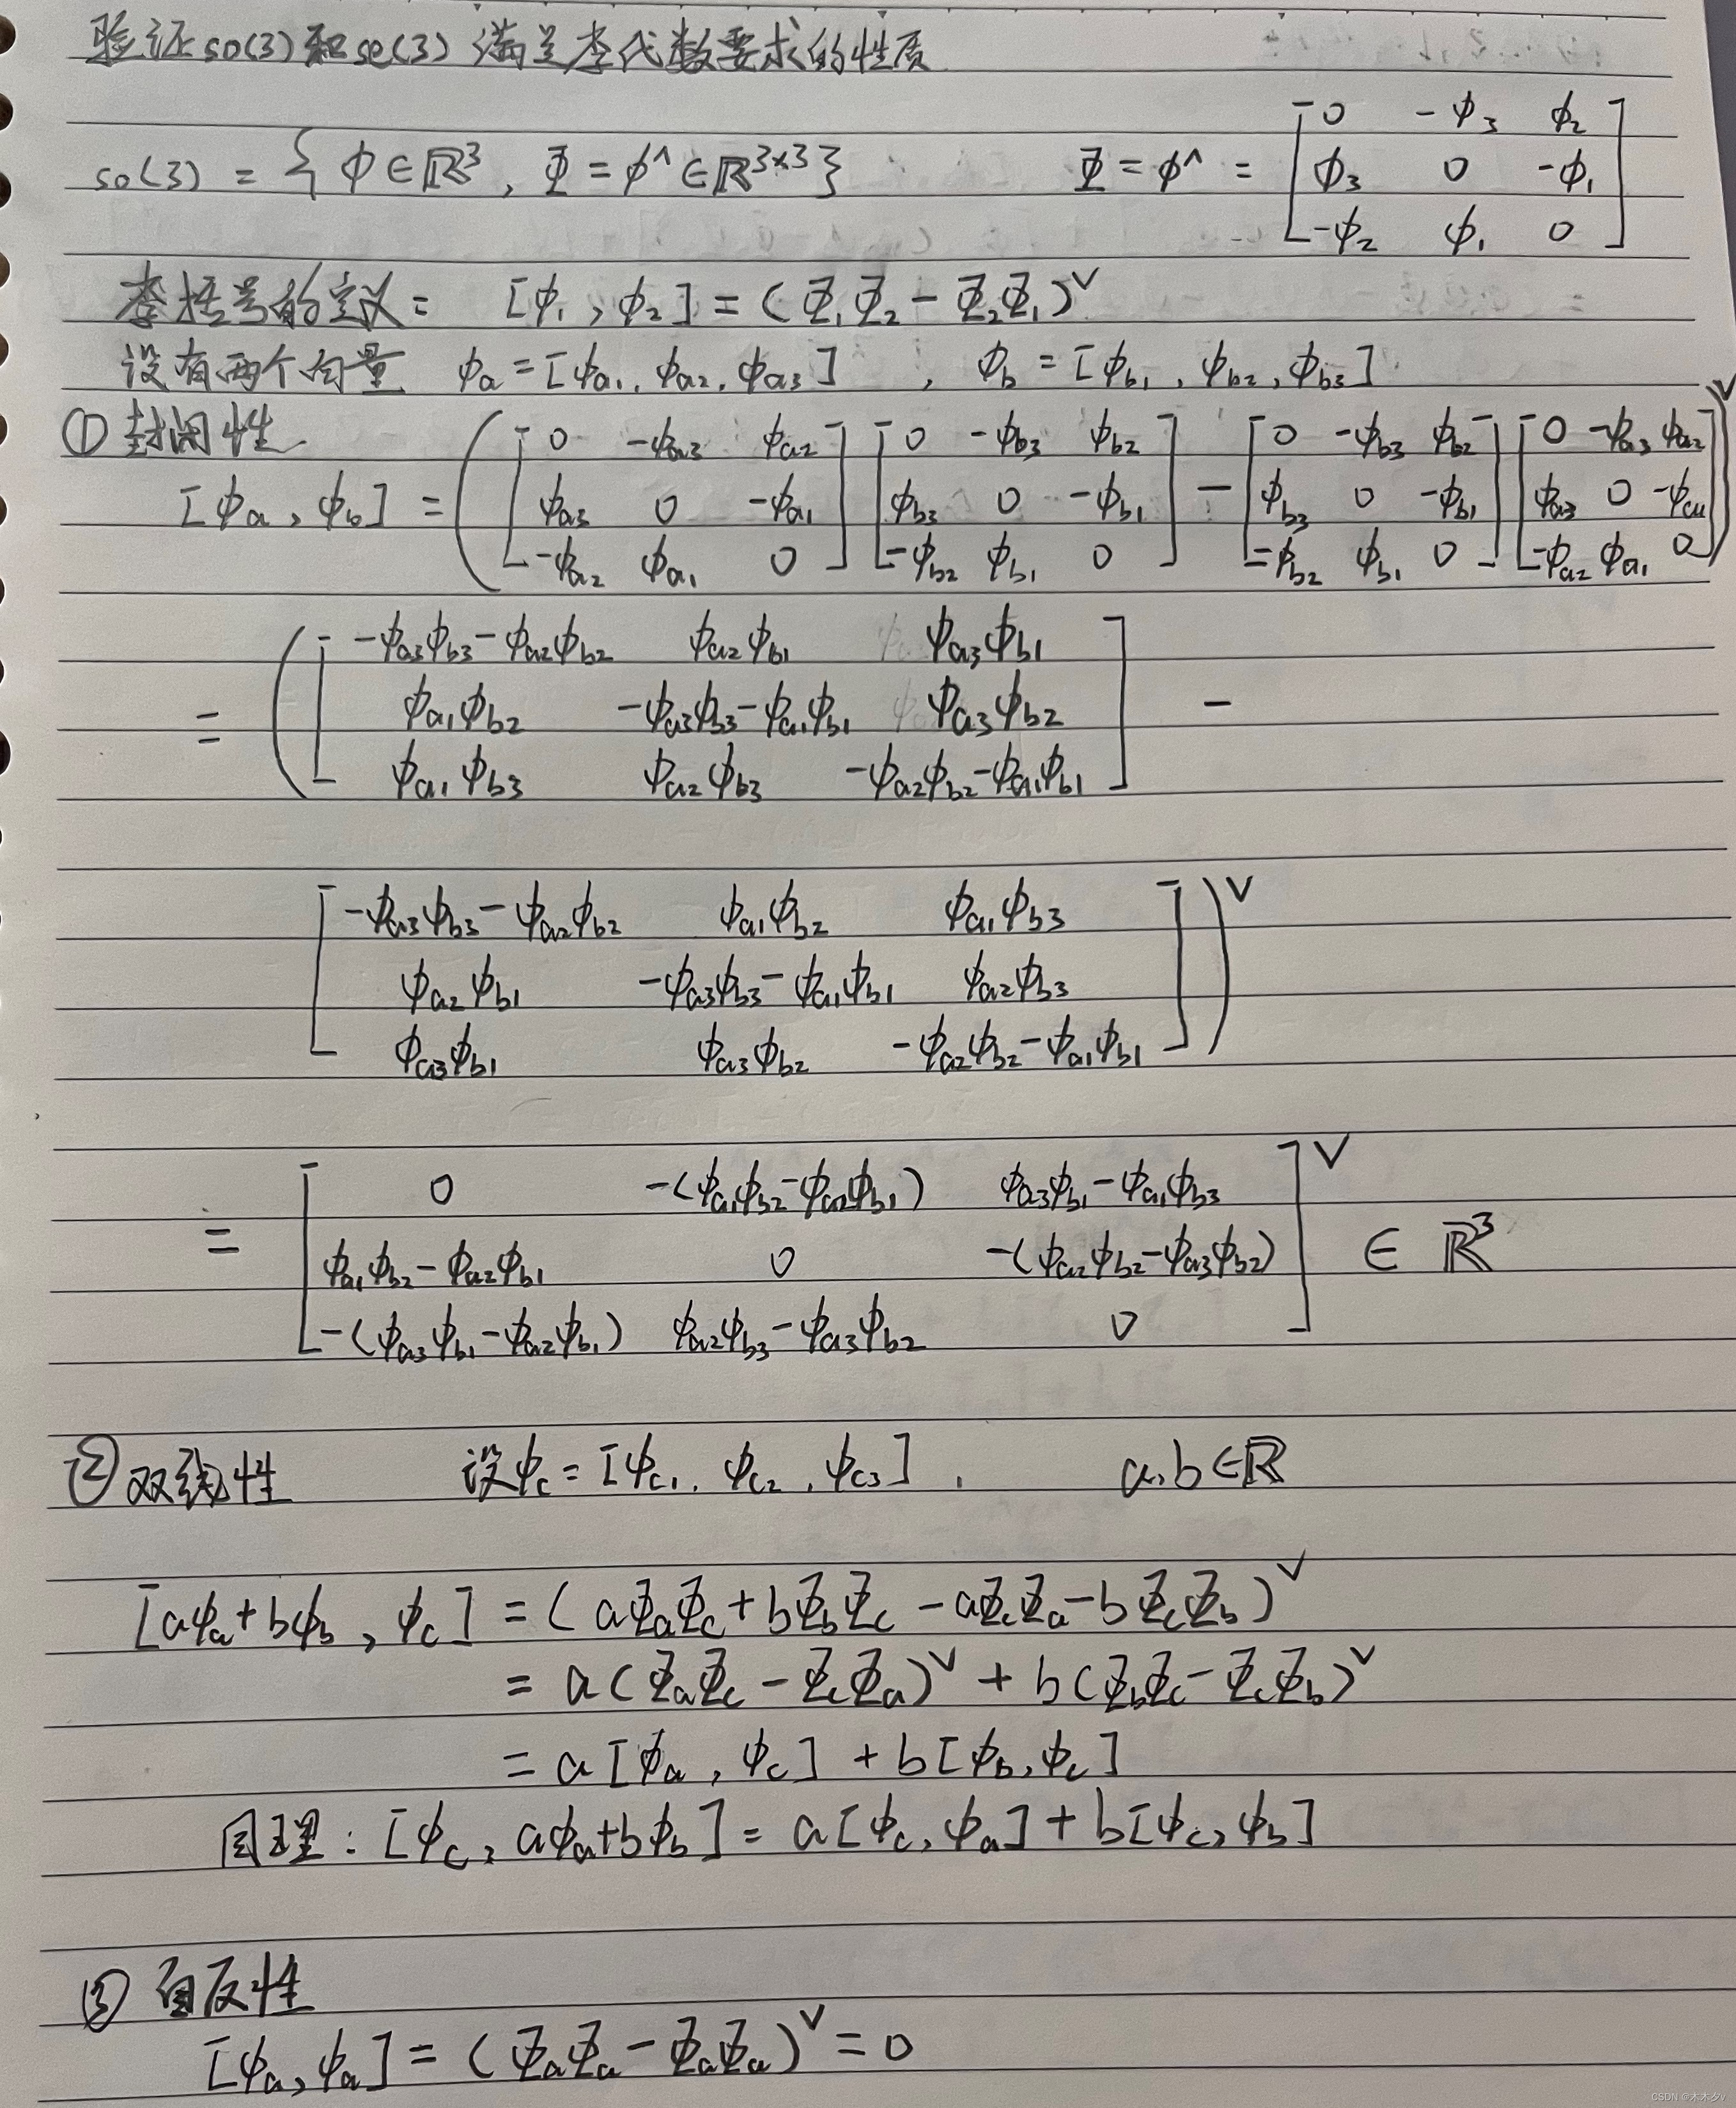 验证so(3)和se(3)满足李代数要求的性质
so(3) = { ϕ∈ℝ³, Φ = ϕ^∈ℝ³ˣ³ } Φ = ϕ^ = [ 0 -ϕ₃ ϕ₂
ϕ₃ 0 -ϕ₁
-ϕ₂ ϕ₁ 0 ]
李括号的定义: [ϕ₁, ϕ₂] = (Φ₁Φ₂ - Φ₂Φ₁)^∨
设有两个向量 ϕa = [ϕa1, ϕa2, ϕa3] , ϕb = [ϕb1, ϕb2, ϕb3]
① 封闭性
[ϕa, ϕb] = ( [ 0 -ϕa3 ϕa2 ; ϕa3 0 -ϕa1 ; -ϕa2 ϕa1 0 ] [ 0 -ϕb3 ϕb2 ; ϕb3 0 -ϕb1 ; -ϕb2 ϕb1 0 ] - [ 0 -ϕb3 ϕb2 ; ϕb3 0 -ϕb1 ; -ϕb2 ϕb1 0 ] [ 0 -ϕa3 ϕa2 ; ϕa3 0 -ϕa1 ; -ϕa2 ϕa1 0 ] )^∨
= ( [ -ϕa3ϕb3-ϕa2ϕb2 ϕa2ϕb1 ϕa3ϕb1
ϕa1ϕb2 -ϕa3ϕb3-ϕa1ϕb1 ϕa3ϕb2
ϕa1ϕb3 ϕa2ϕb3 -ϕa2ϕb2-ϕa1ϕb1 ] -
[ -ϕa3ϕb3-ϕa2ϕb2 ϕa1ϕb2 ϕa1ϕb3
ϕa2ϕb1 -ϕa3ϕb3-ϕa1ϕb1 ϕa2ϕb3
ϕa3ϕb1 ϕa3ϕb2 -ϕa2ϕb2-ϕa1ϕb1 ] )^∨
= [ 0 -(ϕa1ϕb2-ϕa2ϕb1) ϕa3ϕb1-ϕa1ϕb3
ϕa1ϕb2-ϕa2ϕb1 0 -(ϕa2ϕb2-ϕa3ϕb2)
-(ϕa3ϕb1-ϕa2ϕb1) ϕa2ϕb3-ϕa3ϕb2 0 ]^∨ ∈ ℝ³
② 双线性 设ϕc = [ϕc1, ϕc2, ϕc3] , a,b∈ℝ
[aϕa+bϕb, ϕc] = (aΦaΦc+bΦbΦc-aΦcΦa-bΦcΦb)^∨
= a(ΦaΦc-ΦcΦa)^∨ + b(ΦbΦc-ΦcΦb)^∨
= a[ϕa, ϕc] + b[ϕb, ϕc]
同理: [ϕc, aϕa+bϕb] = a[ϕc, ϕa] + b[ϕc, ϕb]
③ 自反性
[ϕa, ϕa] = (ΦaΦa - ΦaΦa)^∨ = 0
CSDN @木木夕y